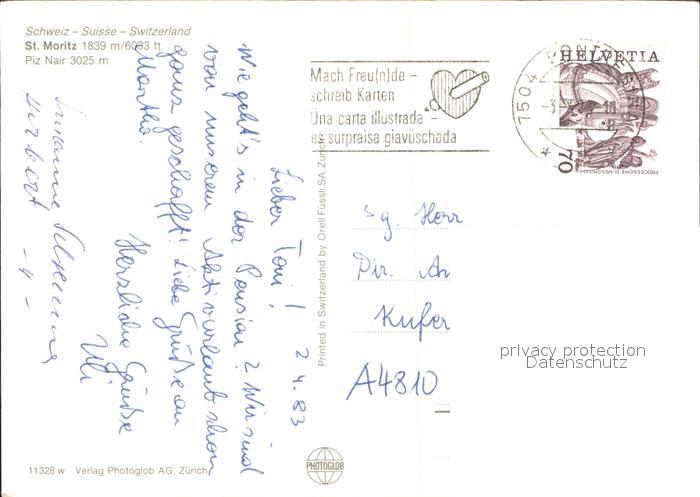 Schweiz – Suisse – Switzerland
St. Moritz 1839 m/6033 ft.
Piz Nair 3025 m
Mach Freu(n)de –
schreib Karten
Una carta illustrada –
es surpraisa giavüschada
HELVETIA
70
PROCESSIONE DI MENDRISIO
7504 PONTRESINA
Lieber Toni! 2 4.83
Wie geht's in der Pension? Wir sind
von unserem Aktivurlaub schon
ganz geschafft! Liebe Grüße an
Martha.
Herzliche Grüße
Uli
Susanne
Herbert
Printed in Switzerland by Orell Füssli SA, Zürich
Sg. Herr
Dir. An
Kufer
A4810
privacy protection
Datenschutz
PHOTOGLOB
11328 w Verlag Photoglob AG, Zürich